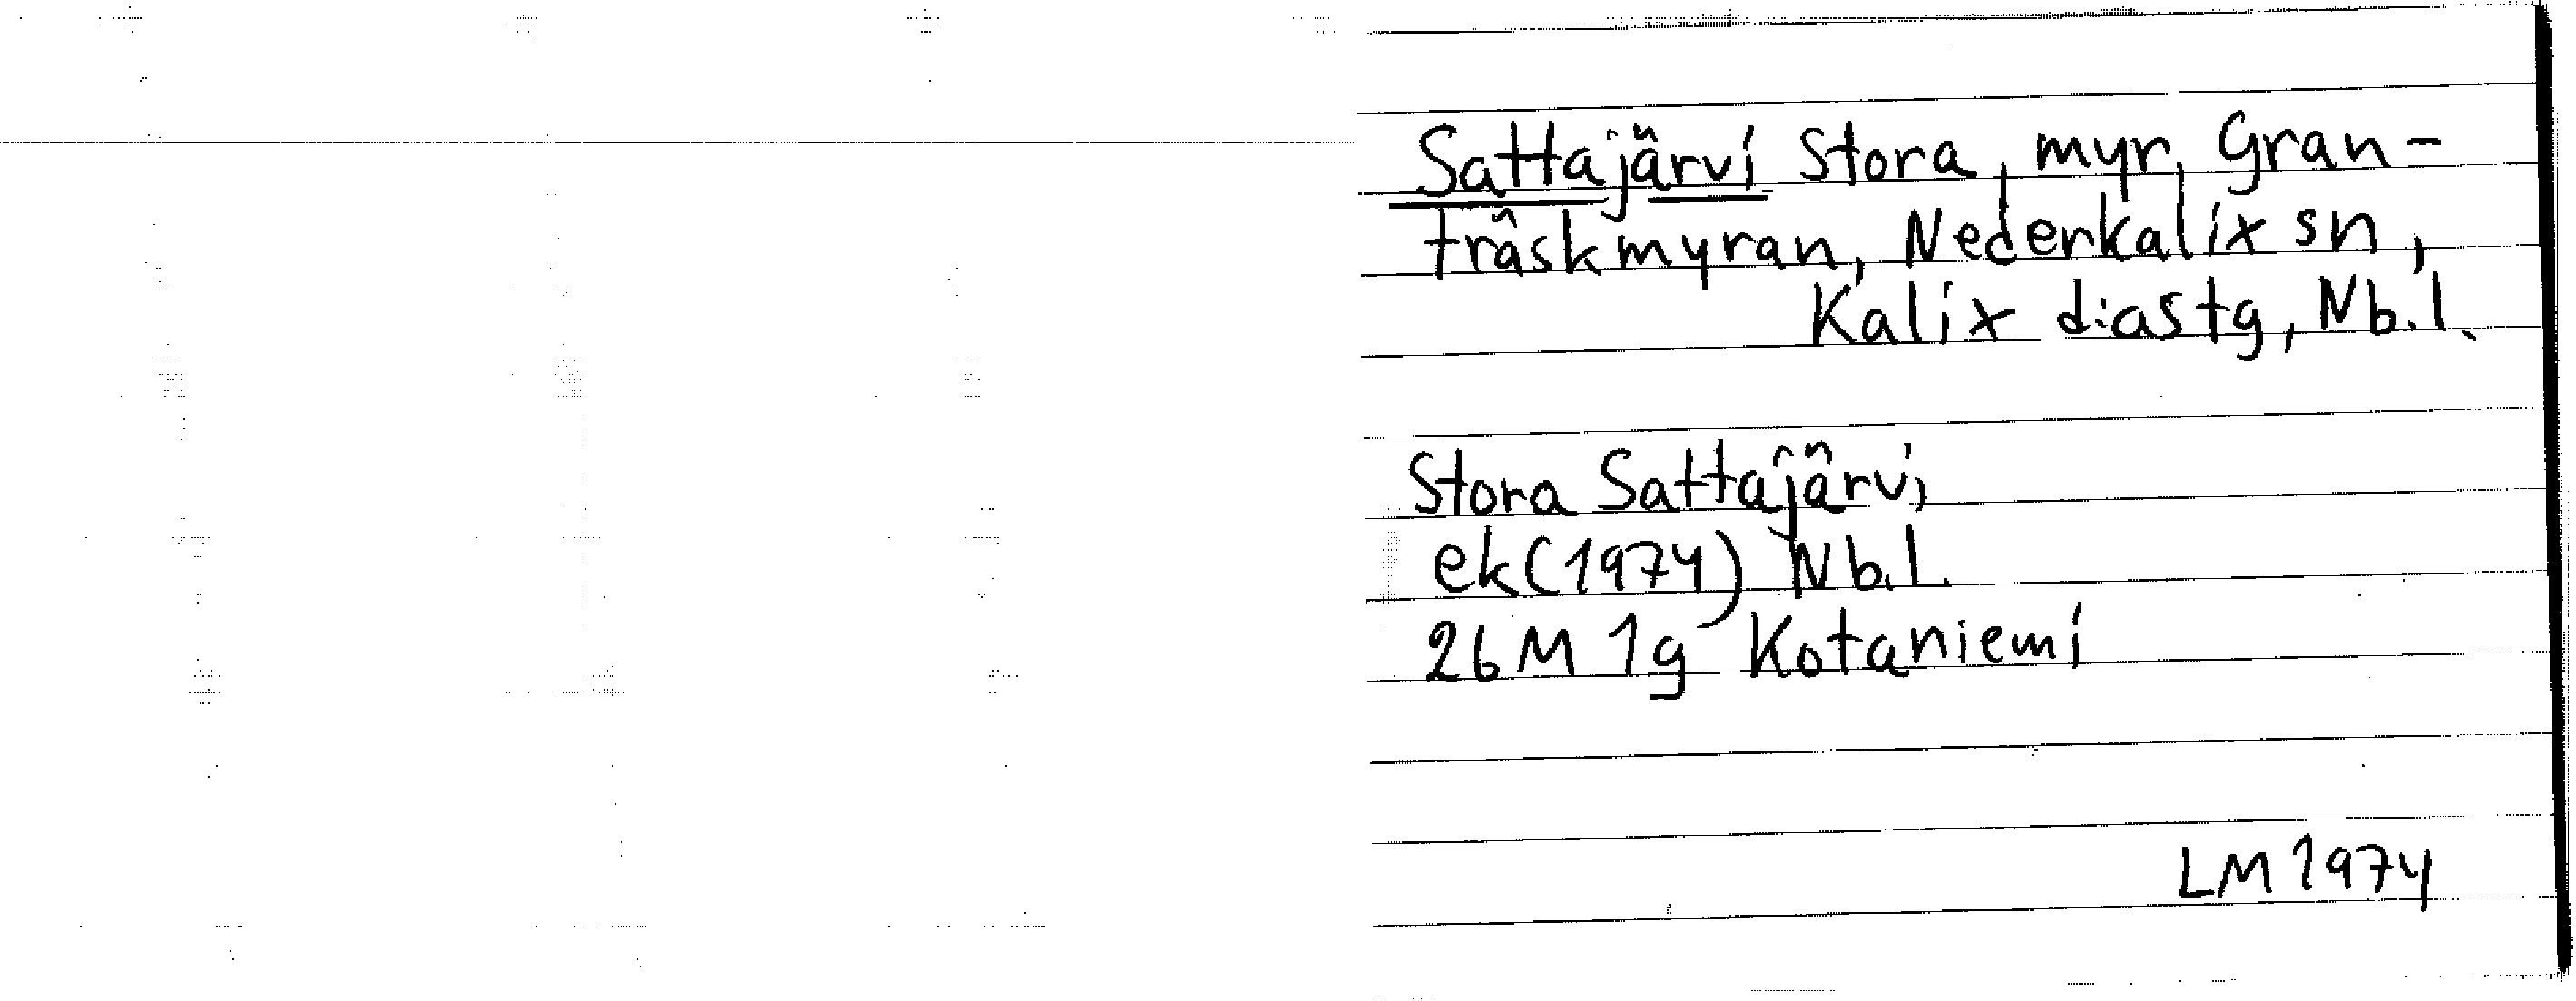 Sattajärvi Stora, myr, Gran-
träskmyran, Nederkalix sn,
Kalix d:astg, Nb.l.
Stora Sattajärvi
ek(1974) Nb.l.
26M 1g Kotaniemi
LM 1974